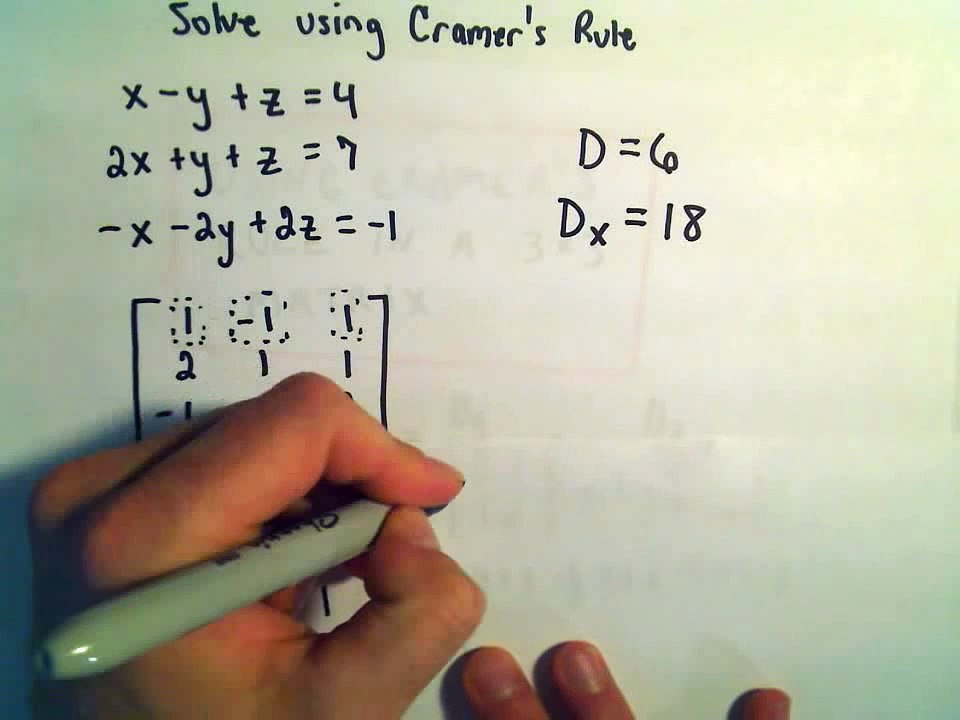 Solve using Cramer's Rule
x - y + z = 4
2x + y + z = 7
D = 6
-x - 2y + 2z = -1
Dx = 18
1 -1 1
2 1 1
-1
1